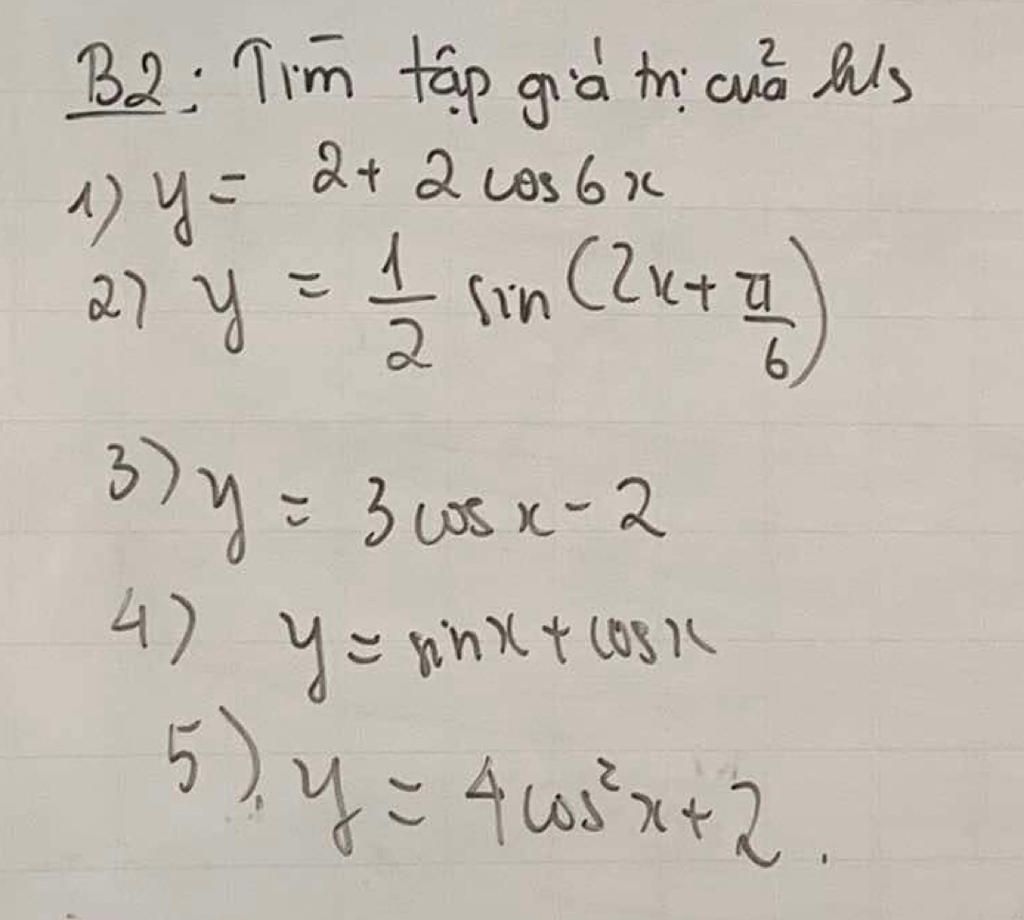 B2: Tìm tập giá trị của h/s
1) y = 2 + 2 cos 6x
2) y = \frac{1}{2} sin (2x + \frac{π}{6})
3) y = 3 cos x - 2
4) y = sin x + cos x
5). y = 4 cos² x + 2.